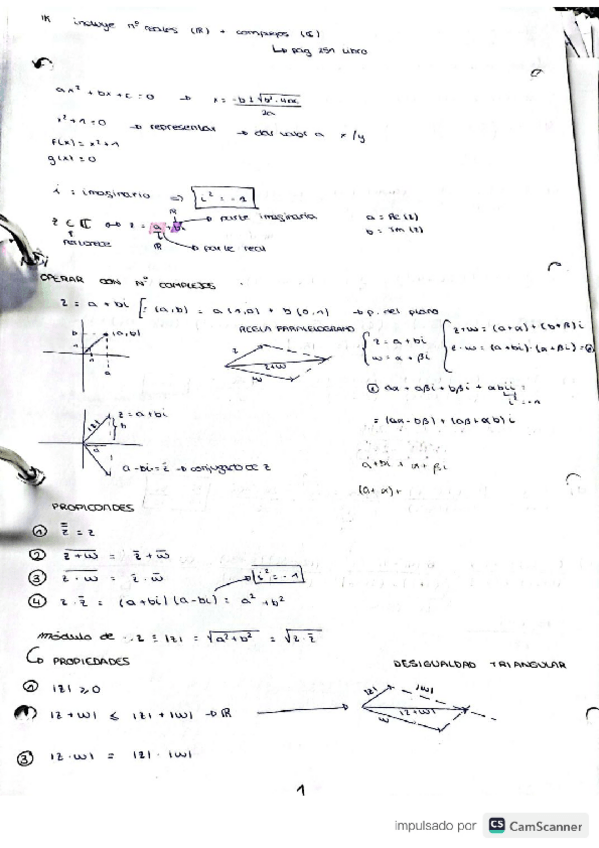 IK incluye nº reales (IR) + complejos (C)
↳ pág 251 libro
ax² + bx + c = 0 → x = -b ± √b² - 4ac / 2a
x² + 1 = 0 → representar → dar valor a x/y
f(x) = x² + 1
g(x) = 0
i : imaginario ⇒ i² = -1
z ∈ C ↔ z = a + bi → parte imaginaria a = Re(z)
pertenece IR → parte real b = Im(z)
OPERAR CON Nº COMPLEJOS
z = a + bi [= (a,b) = a(1,0) + b(0,1) → p. en el plano
(a,b) REGLA PARALELOGRAMO { z = a + bi { z + w = (a+α) + (b+β)i
z w z+w w = α + βi z · w = (a+bi) · (α+βi) = ②
② aα + aβi + bαi + bβii
i² = -1
= (aα - bβ) + (aβ + αb)i
z = a + bi
|z| b
a - bi = z̄ → conjugado de z
a + bi + α + βi
(a + α) +
PROPIEDADES
① z̿ = z
② z+w̅ = z̄ + w̄
③ z·w̅ = z̄ · w̄ i² = -1
④ z · z̄ = (a+bi)(a-bi) = a² + b²
módulo de z ≡ |z| = √a²+b² = √z·z̄
↳ PROPIEDADES DESIGUALDAD TRIANGULAR
① |z| ≥ 0 |z| |w|
|z+w| ≤ |z| + |w| → IR |z+w|
w
③ |z·w| = |z| · |w|
1
impulsado por CS CamScanner